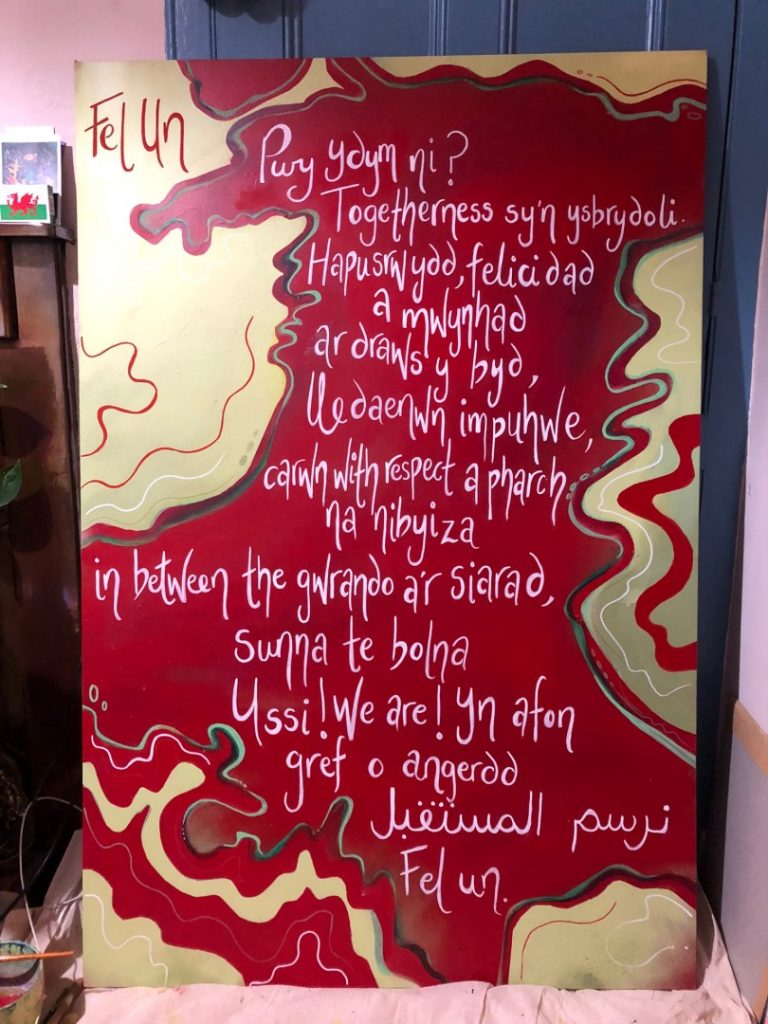 Fel Un
Pwy ydym ni?
Togetherness sy'n ysbrydoli.
Hapusrwydd, felicidad
a mwynhad
ar draws y byd,
lledaenwn impuhwe,
carwn with respect a pharch
na nibyiza
in between the gwrando a'r siarad,
sunna te bolna
Ussi! We are! Yn afon
gref o angerdd
نرسم المستقبل
Fel un.